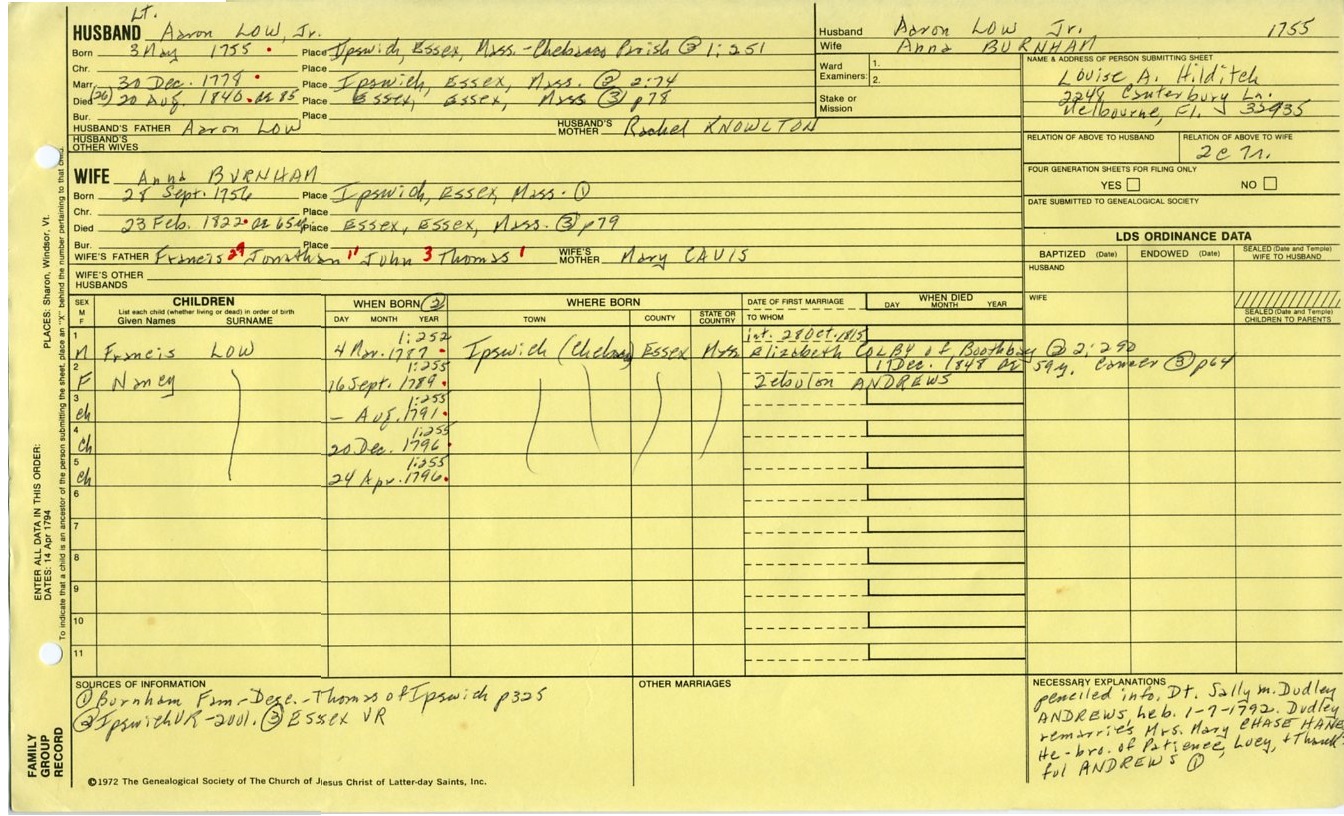 Lt.
HUSBAND Aaron LOW, Jr.
Born 3 May 1755 Place Ipswich, Essex, Mass. - Chebacco Parish ③ 1:251
Chr. Place
Marr. 30 Dec. 1778 Place Ipswich, Essex, Mass. ② 2:74
Died (26) 20 Aug. 1840 ae 85 Place Essex, Essex, Mass ③ p78
Bur. Place
HUSBAND'S FATHER Aaron LOW HUSBAND'S MOTHER Rachel KNOWLTON
HUSBAND'S OTHER WIVES
Husband Aaron LOW Jr. 1755
Wife Anna BURNHAM
Ward Examiners: 1. 2.
Stake or Mission
NAME & ADDRESS OF PERSON SUBMITTING SHEET
Louise A. Hilditch
2248 Canterbury Ln.
Melbourne, Fl. 32935
RELATION OF ABOVE TO HUSBAND RELATION OF ABOVE TO WIFE
FOUR GENERATION SHEETS FOR FILING ONLY
YES NO
DATE SUBMITTED TO GENEALOGICAL SOCIETY
WIFE Anna BURNHAM
Born 28 Sept. 1756 Place Ipswich, Essex, Mass. ①
Chr. Place
Died 23 Feb. 1822 ae 65 Place Essex, Essex, Mass. ③ p79
Bur. Place
WIFE'S FATHER Francis 29 Jonathan 11 John 3 Thomas 1 WIFE'S MOTHER Mary CAVIS
WIFE'S OTHER HUSBANDS
LDS ORDINANCE DATA
BAPTIZED (Date) ENDOWED (Date) SEALED (Date and Temple) WIFE TO HUSBAND
HUSBAND
WIFE
SEALED (Date and Temple) CHILDREN TO PARENTS
SEX M F CHILDREN WHEN BORN ② WHERE BORN DATE OF FIRST MARRIAGE WHEN DIED
List each child (whether living or dead) in order of birth
Given Names SURNAME DAY MONTH YEAR TOWN COUNTY STATE OR COUNTRY TO WHOM DAY MONTH YEAR
1 1:252 int. 28 Oct. 1815
M Francis LOW 4 Mar. 1787 Ipswich (Chebacco) Essex Mass Elizabeth COLBY of Boothbay ② 2:290
2 1:255 17 Dec. 1848 ae 59y. Cancer ③ p64
F Nancy 16 Sept. 1789 Zebulon ANDREWS
3 1:255
ch – Aug. 1791
4 1:255
ch 20 Dec. 1796
5 1:255
ch 24 Apr. 1796
6
7
8
9
10
11
SOURCES OF INFORMATION
① Burnham Fam - Dece. - Thomas of Ipswich p325
② Ipswich VR - 2001. ③ Essex VR
OTHER MARRIAGES
NECESSARY EXPLANATIONS
penciled info. Dt. Sally m. Dudley
ANDREWS, heb. 1-7-1792. Dudley
remarries Mrs. Mary CHASE HANE
He - bro. of Patience, Lucy, + Thank-
ful ANDREWS ①
©1972 The Genealogical Society of The Church of Jesus Christ of Latter-day Saints, Inc.
FAMILY GROUP RECORD
ENTER ALL DATA IN THIS ORDER:
DATES: 14 Apr 1794
PLACES: Sharon, Windsor, Vt.
To indicate that a child is an ancestor of the person submitting the sheet, place an "X" behind the number pertaining to that child.